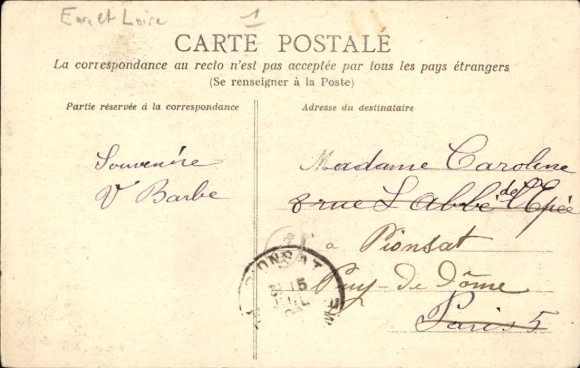 Eure et Loire 1
CARTE POSTALE
La correspondance au recto n'est pas acceptée par tous les pays étrangers
(Se renseigner à la Poste)
Partie réservée à la correspondance
Adresse du destinataire
Souvenire
V Barbe
Madame Caroline
8 rue L'Abbé de l'Epée
à Pionsat
Puy-de-Dôme
Paris 5
PIONSAT
15